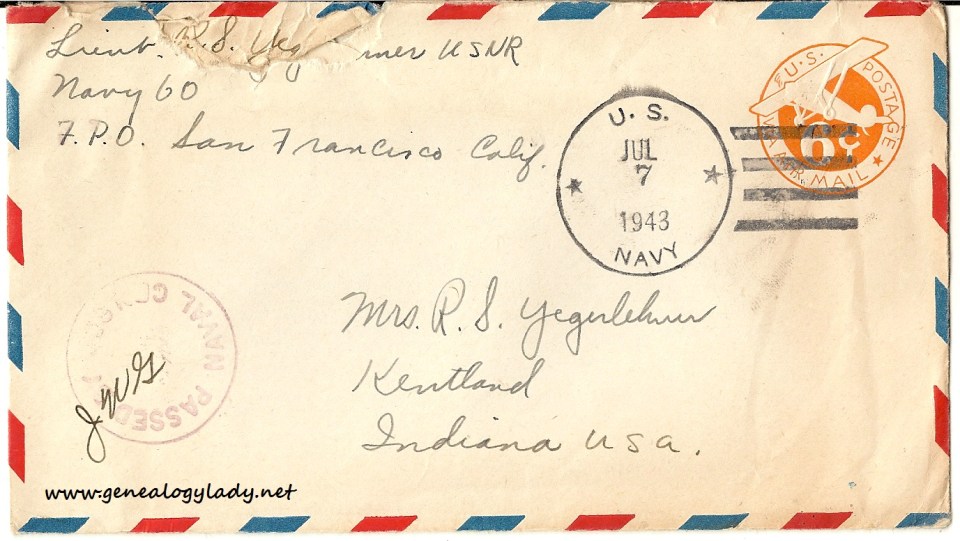 Lieut. R. S. Yeg mer USNR
Navy 60
F.P.O. San Francisco Calif.
U.S. POSTAGE
6¢
VIA AIR MAIL
U. S.
JUL
7
1943
NAVY
Mrs. R. S. Yegerlehner
Kentland
Indiana USA.
PASSED BY
NAVAL CENSOR
JWG
www.genealogylady.net